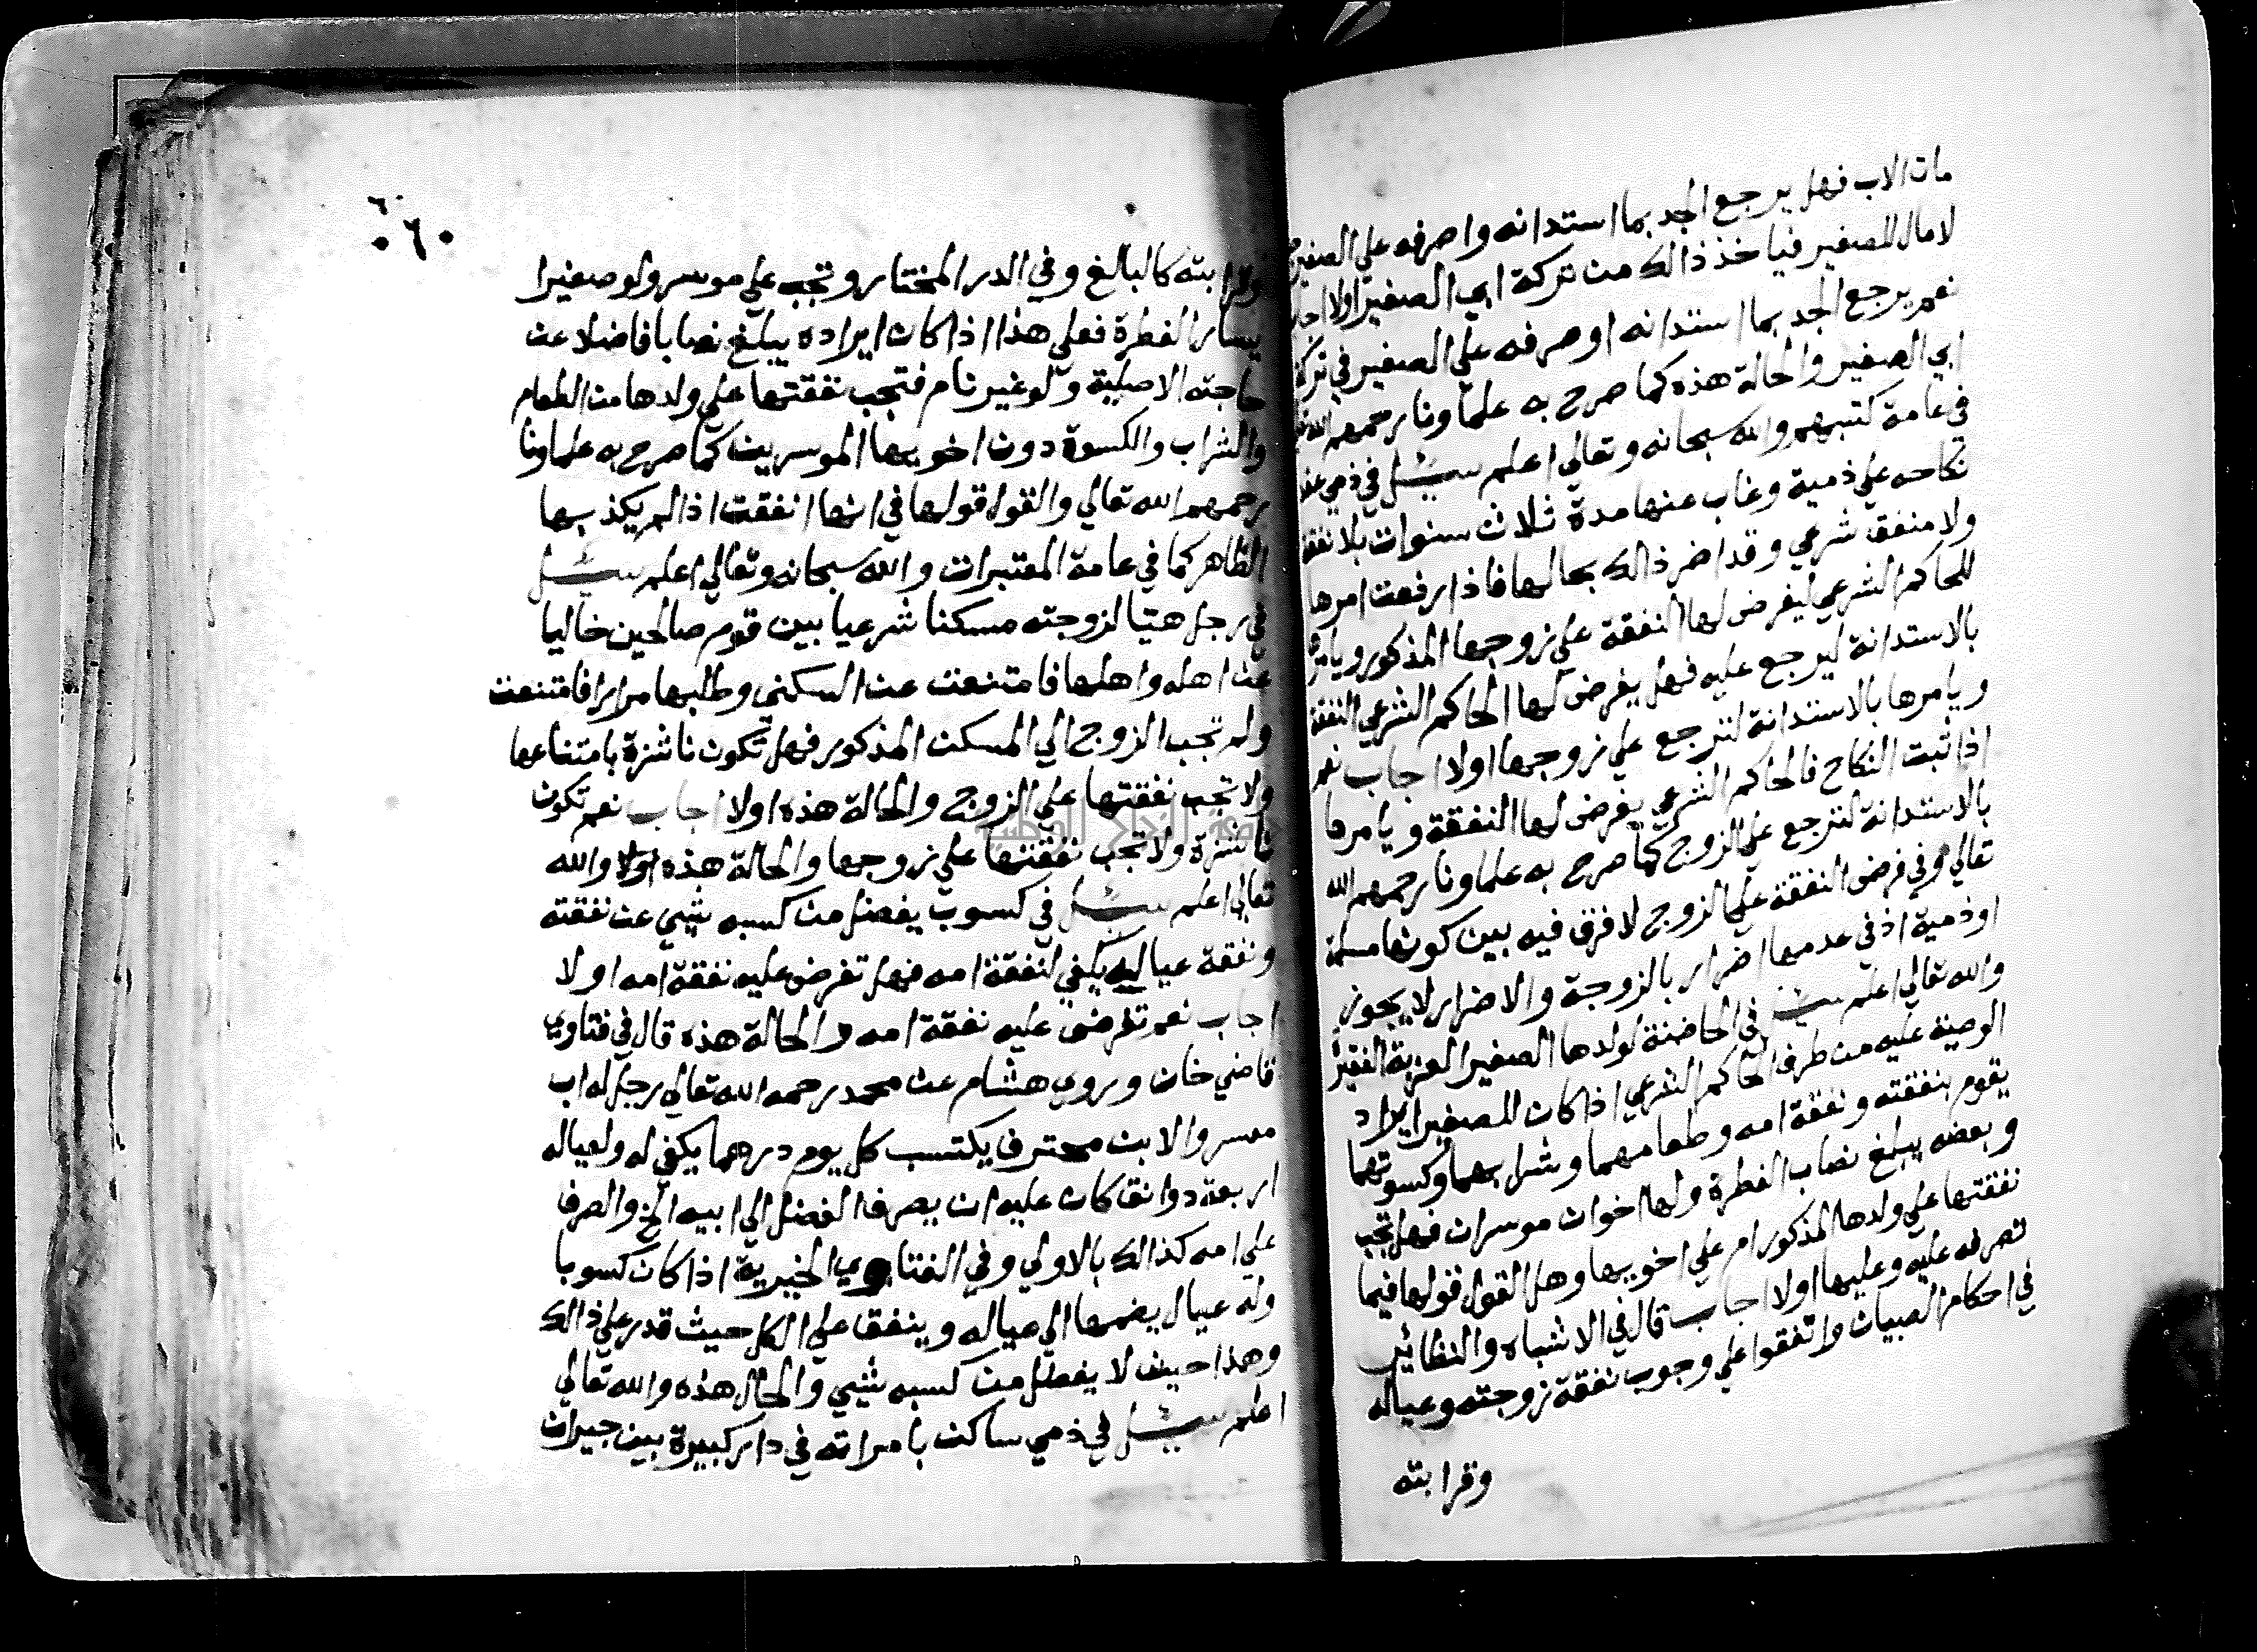 مات الاب فهل يرجع الجد بما استدانه واصرفه علي الصغير
لا مال للصغير فياخذ ذالك من تركة ابي الصغير اولا اجاب
نعم يرجع الجد بما استدانه اوصرفه علي الصغير في تركة
ابي الصغير والحالة هذه كما صرح به علماونا رحمهم الله
في عامة كتبهم والله سبحانه وتعالي اعلم سئل في ذمي عقد
نكاحه علي ذمية وغاب عنها مدة ثلاث سنوات بلا نفقة
ولا منفق شرعي وقد اضر ذالك بحالها فاذا رفعت امرها
للحاكم الشرعي ليفرض لها النفقة علي زوجها المذكور ويامرها
بالاستدانة ليرجع عليه فهل يفرض لها الحاكم الشرعي النفقة
ويامرها بالاستدانة لترجع علي زوجها اولا اجاب نعم
اذا ثبت النكاح فالحاكم الشرعي يفرض لها النفقة ويامرها
بالاستدانة لترجع علي الزوج كما صرح به علماونا رحمهم الله
تعالي وفي فرض النفقة علي الزوج لا فرق فيه بين كونها مسلمة
اوذمية اذ في عدمها اضرار بالزوجة والاضرار لا يجوز
والله تعالي اعلم سئل في الحاضنة لولدها الصغير العزبة الفقيرة
الوصية عليه من طرف الحاكم الشرعي اذا كان للصغير ايراد
يقوم بنفقته ونفقة امه وطعامهما وشرابهما وكسوتهما
وبعضه يبلغ نصاب الفطرة ولها اخوان موسران فهل تجب
نفقتها علي ولدها المذكور ام علي اخويها وهل القول قولها فيما
تصرفه عليه وعليها اولا اجاب قال في الاشباه والنظائر
في احكام الصبيان واتفقوا علي وجوب نفقة زوجته وعياله
وقرابته
٦٠
٠٦٠
وقرابته كالبالغ وفي الدر المختار وتجب علي موسر ولو صغيرا
يسار الفطرة فعلي هذا اذا كان ايراده يبلغ نصابا فاضلا عن
حاجته الاصلية ولو غير نام فتجب نفقتها علي ولدها من الطعام
والشراب والكسوة دون اخويها الموسرين كما صرح به علماونا
رحمهم الله تعالي والقول قولها في انها انفقت اذا لم يكذبها
الظاهر كما في عامة المعتبرات والله سبحانه وتعالي اعلم سئل
في رجل هيا لزوجته مسكنا شرعيا بين قوم صالحين خاليا
عن اهله واهلها فامتنعت عن السكني وطلبها مرارا فامتنعت
ولم تجب الزوج الي المسكن المذكور فهل تكون ناشزة بامتناعها
ولا تجب نفقتها علي الزوج والحالة هذه اولا اجاب نعم تكون
ناشزة ولا تجب نفقتها علي زوجها والحالة هذه اولا والله
تعالي اعلم سئل في كسوب يفضل من كسبه شيي عن نفقته
ونفقة عياله يكفي لنفقة امه فهل تفرض عليه نفقة امه اولا
اجاب نعم تفرض عليه نفقة امه والحالة هذه قال في فتاوي
قاضي خان وروي هشام عن محمد رحمه الله تعالي رجل له اب
معسر والابن محترف يكتسب كل يوم درهما يكفي له ولعياله
اربعة دوانق كان عليه ان يصرف الفضل الي ابيه الخ والصرف
علي امه كذالك بالاولي وفي الفتاوي الخيرية اذا كان كسوبا
وله عيال يضمها الي عياله وينفق علي الكل حيث قدر علي ذالك
وهذا حيث لا يفضل من كسبه شيي والحال هذه والله تعالي
اعلم سئل في ذمي ساكن بامراته في دار كبيرة بين جيران